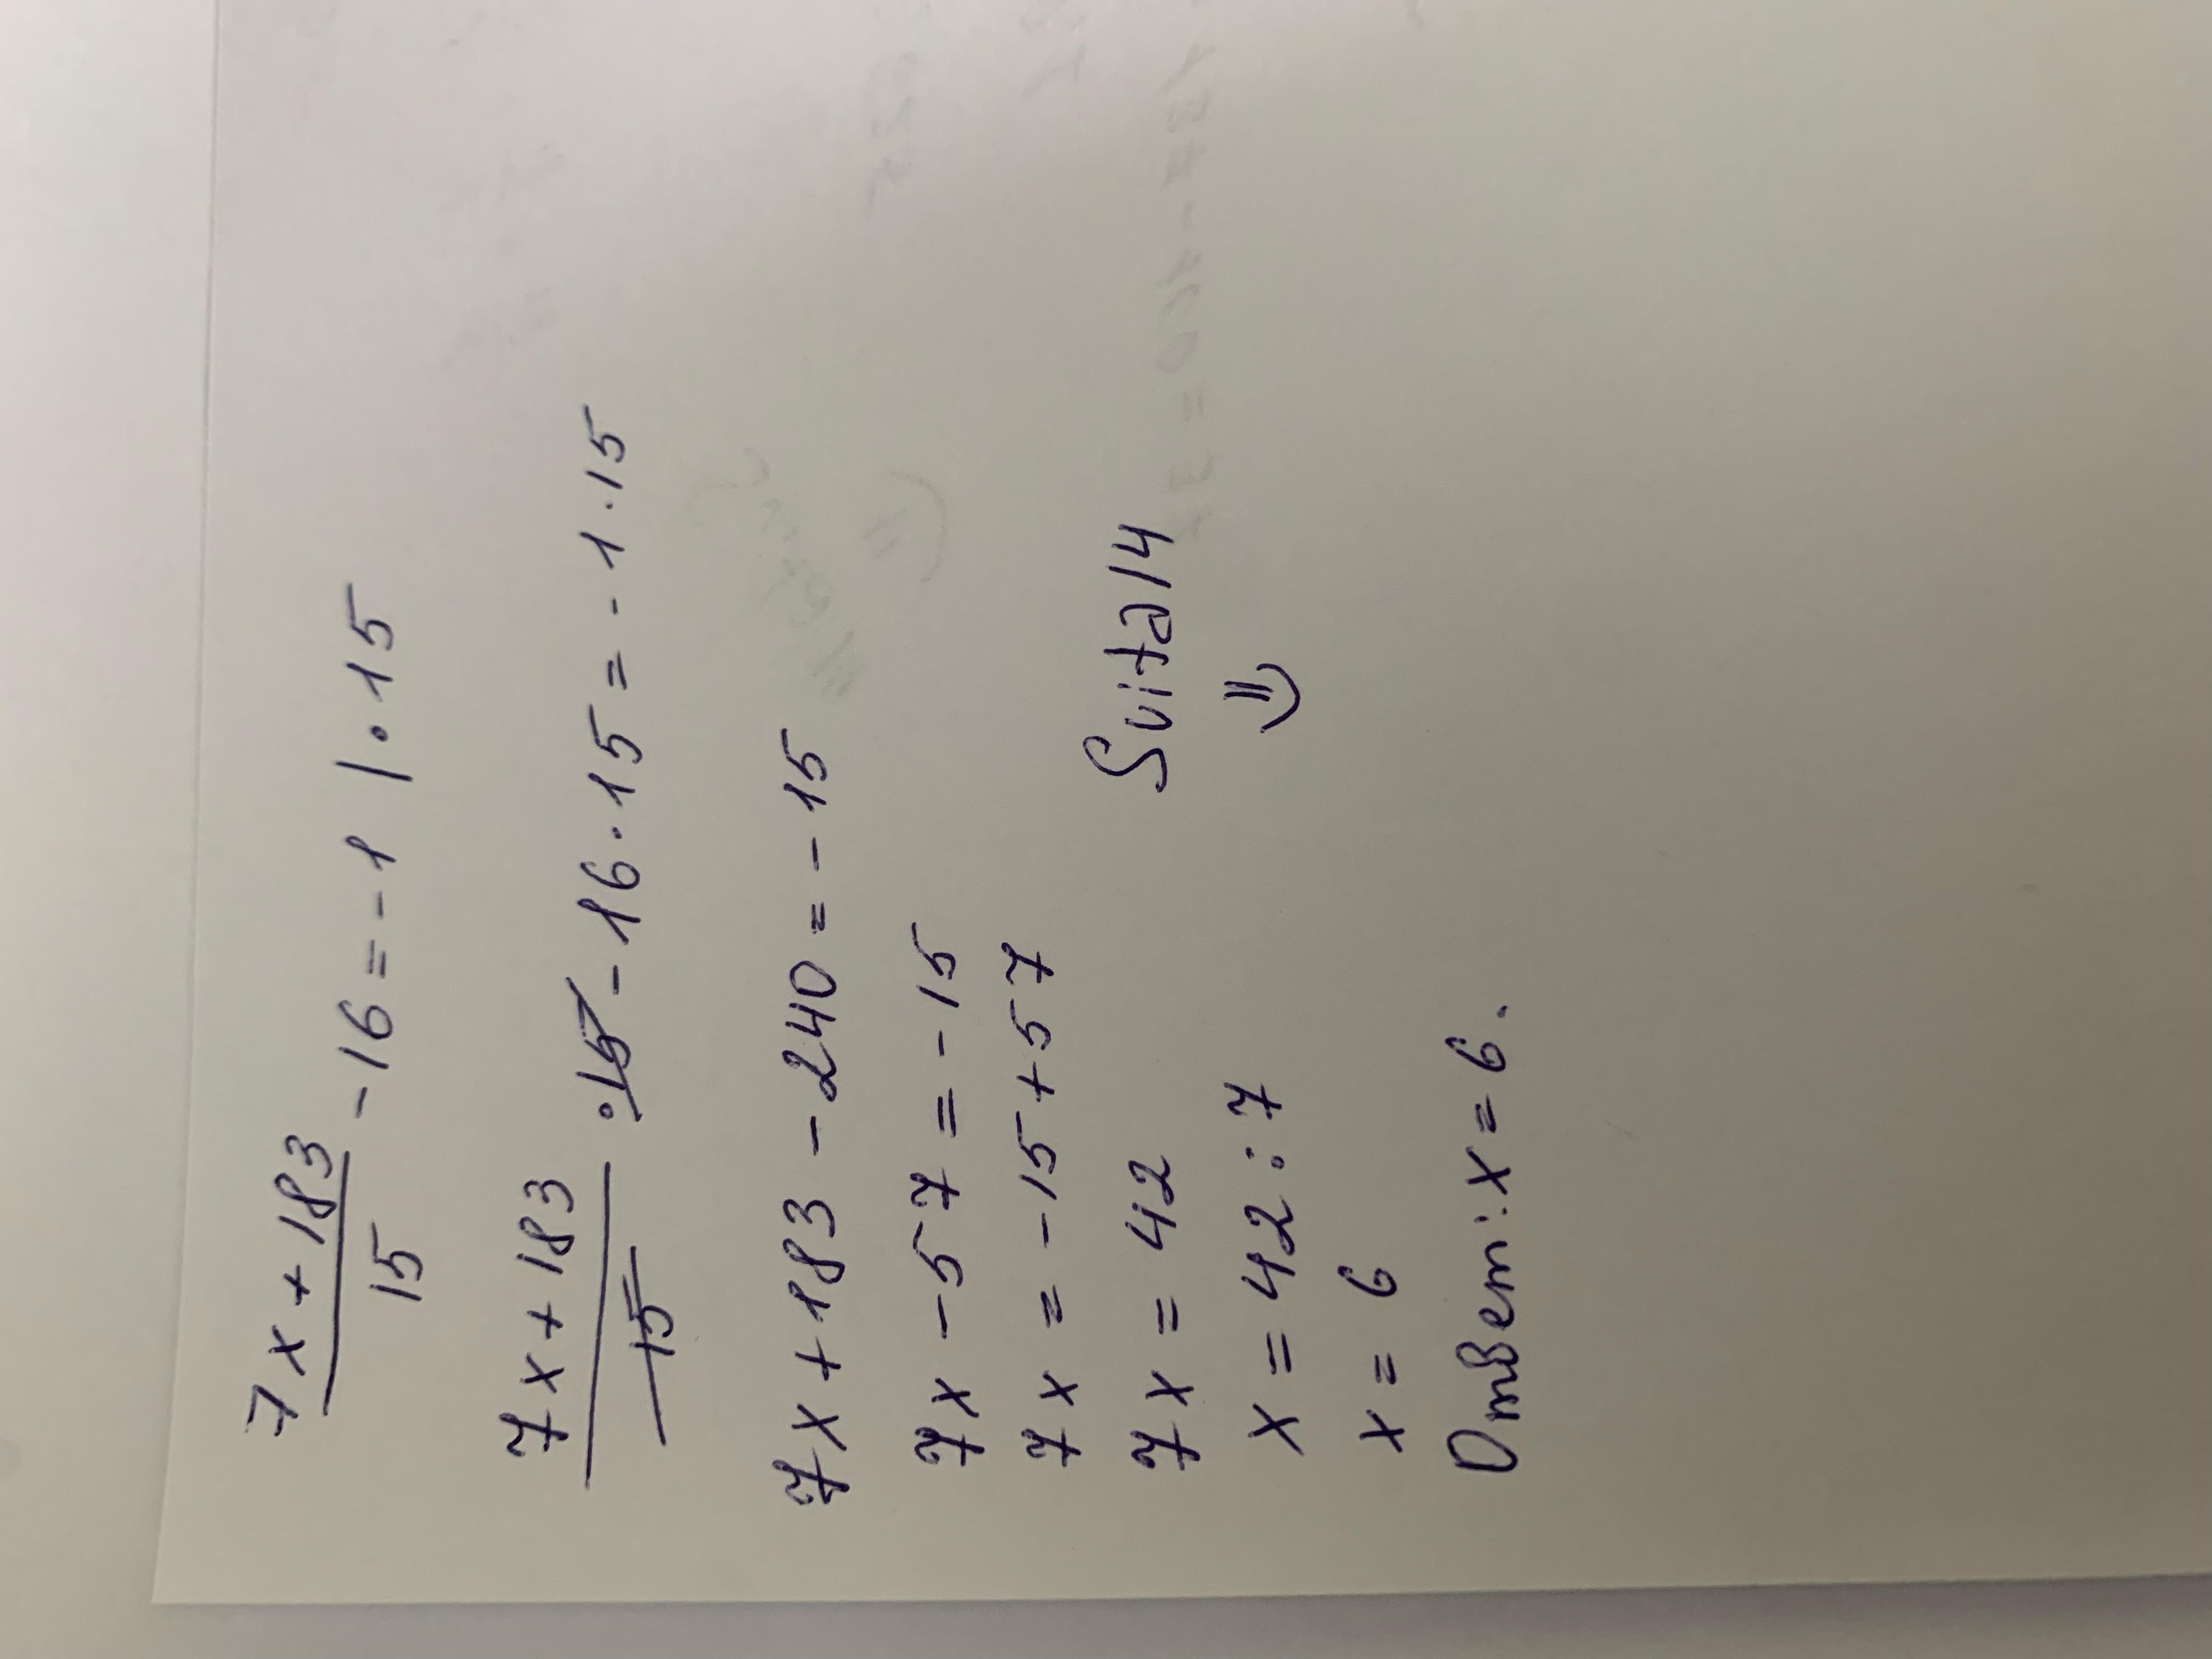 7x+183/15 -16=-1 |·15
7x+183/15 ·15-16·15=-1·15
7x+183-240=-15
7x-57=-15
7x=-15+57
7x=42
x=42:7
x=6
Ответ: x=6.
Svita14
=)